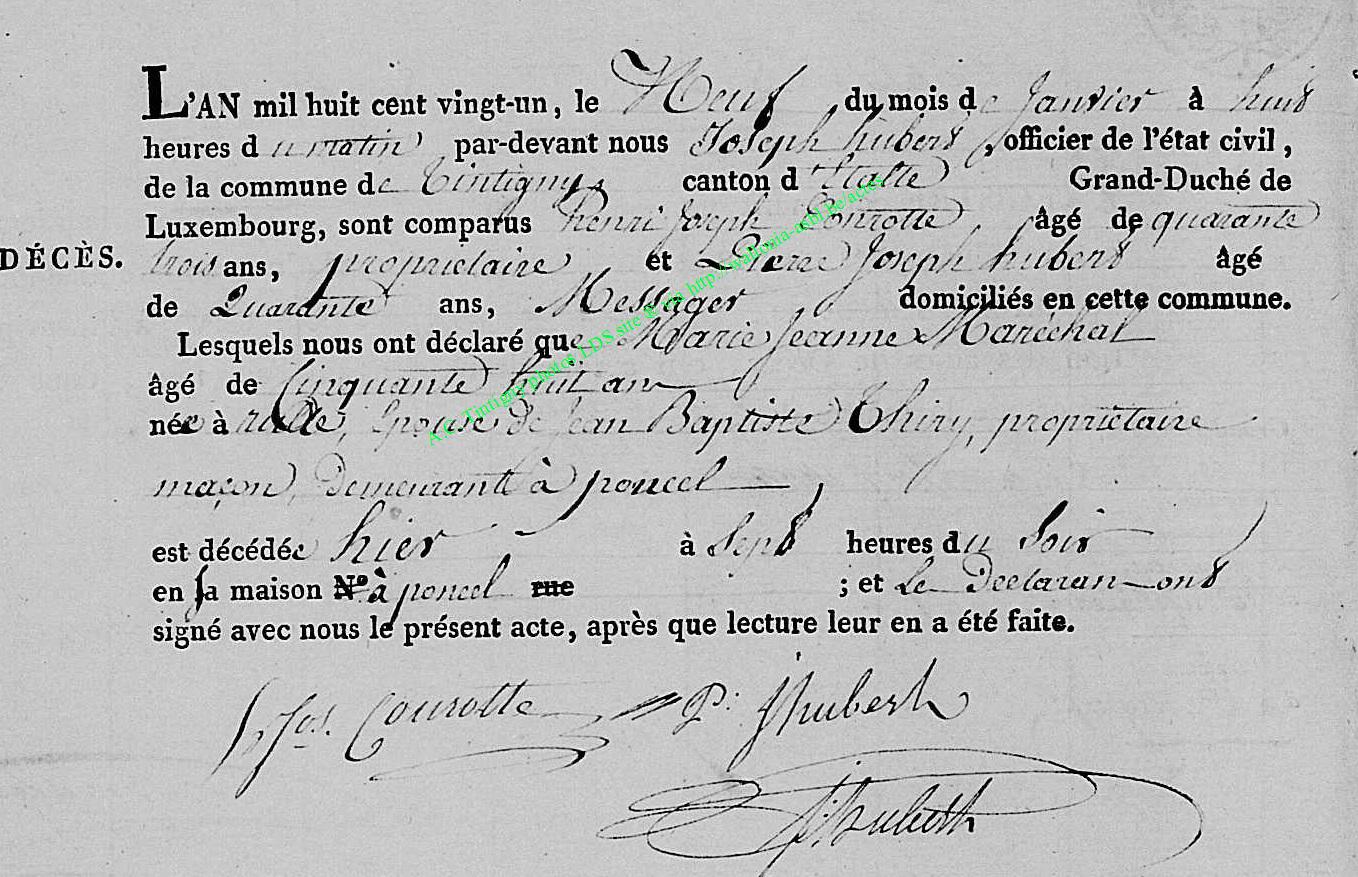 L'AN mil huit cent vingt-un, le Neuf du mois de Janvier à huit
heures du matin par-devant nous Joseph hubert, officier de l'état civil,
de la commune de Tintigny canton d'Etalle Grand-Duché de
Luxembourg, sont comparus henri Joseph Courotte, âgé de quarante
DÉCÈS. trois ans, propriétaire et Pierre Joseph hubert âgé
de Quarante ans, Messager domiciliés en cette commune.
Lesquels nous ont déclaré que Marie Jeanne Maréchal
âgé de Cinquante huit an
née à rulle, Epouse de Jean Baptiste Thiry, propriétaire
maçon, demeurant à poncel,
est décédée hier à Sept heures du Soir
en sa maison N.º à poncel rue ; et Le Declaran ont
signé avec nous le présent acte, après que lecture leur en a été faite.
h. Jos. Courotte P. J hubert
J. hubert
A.C. Tintigny photos LDS site & via http://wallonia-asbl.be/actes